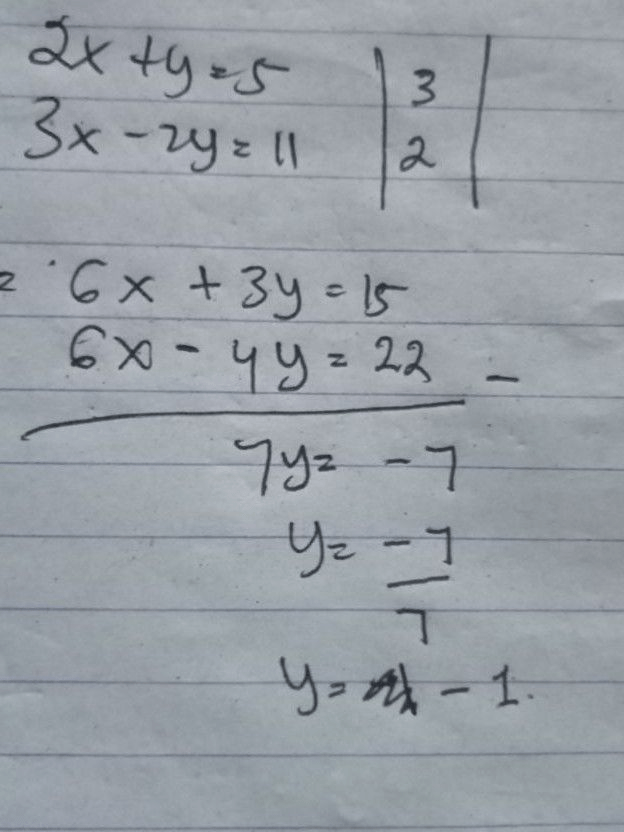 2x + y = 5 | 3 |
3x - 2y = 11 | 2 |
= 6x + 3y = 15
6x - 4y = 22 -
7y = -7
y = -7
7
y = -1.